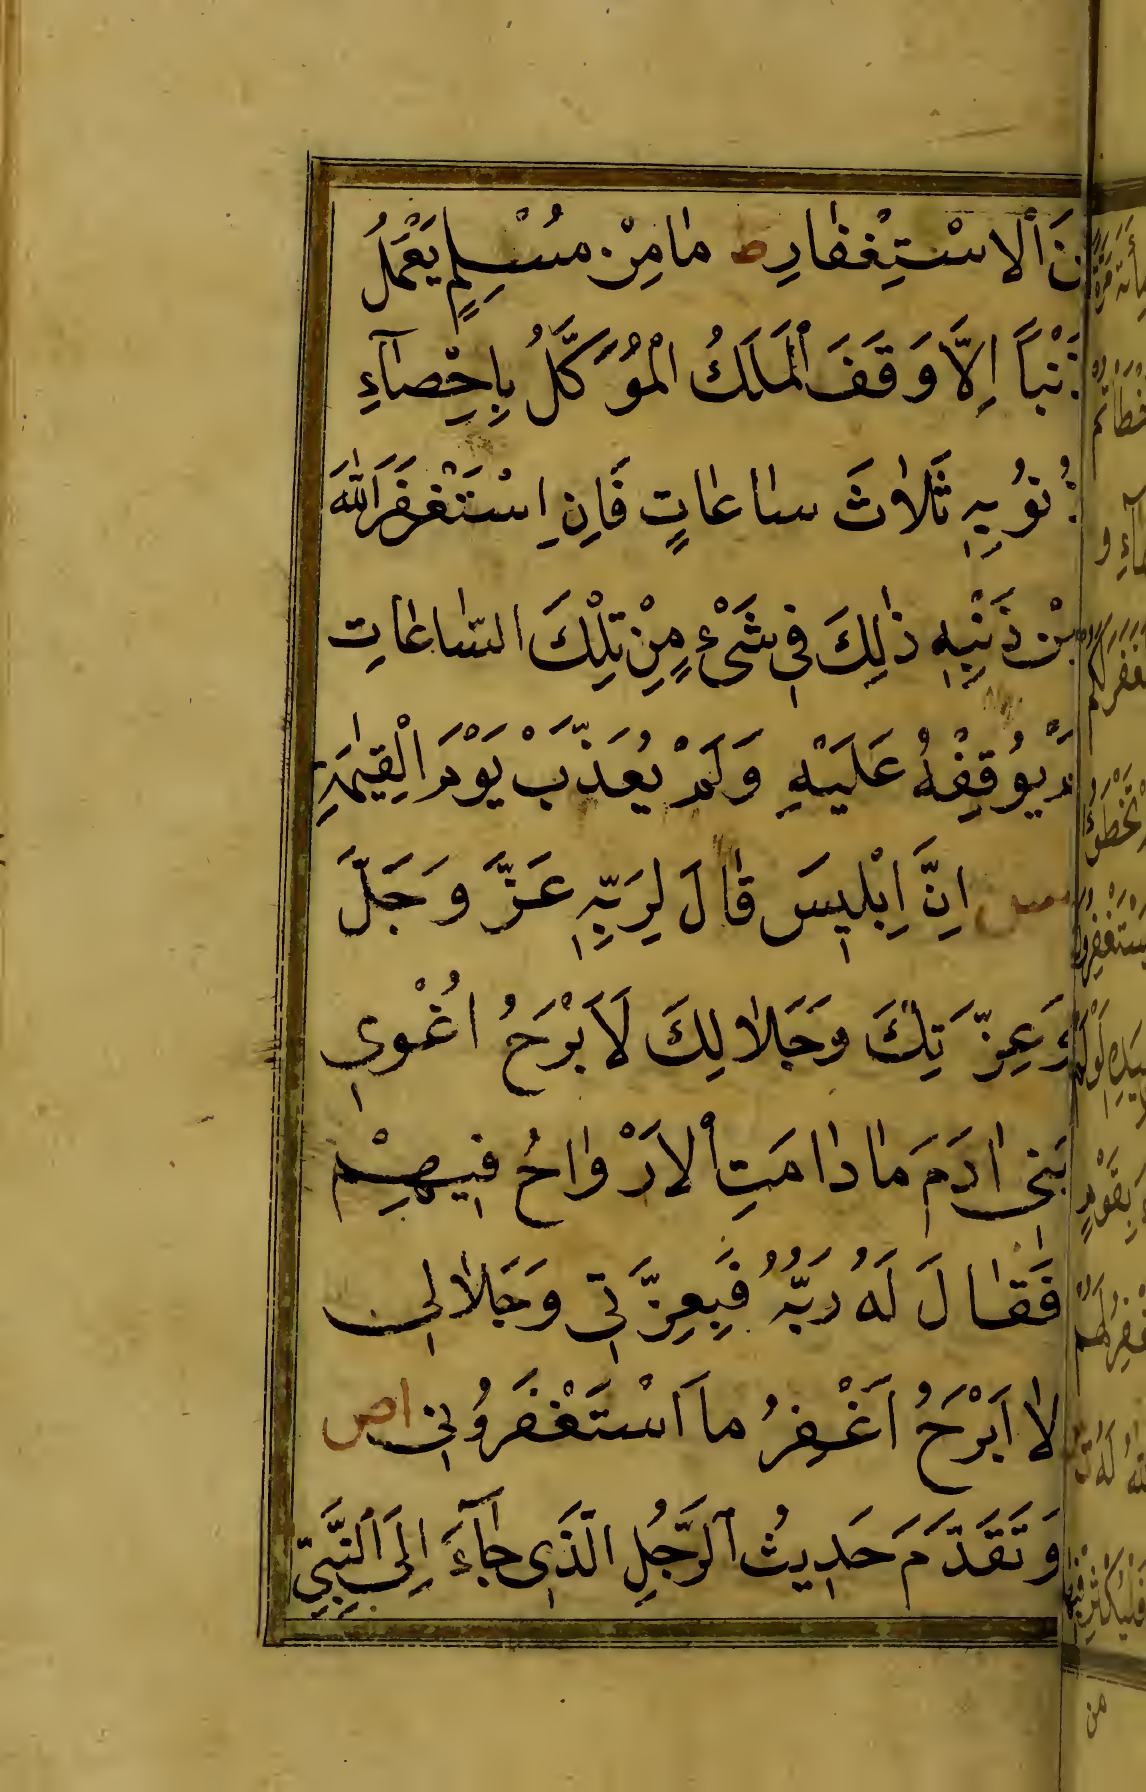 مِنَ ٱلْاسْتِغْفَارِ ط مَا مِنْ مُسْلِمٍ يَعْمَلُ
ذَنْبًا اِلَّا وَقَفَ ٱلْمَلَكُ الْمُوَكَّلُ بِاِحْصَآءِ
ذُنُوبِهٖ ثَلَاثَ سَاعَاتٍ فَاِنِ اسْتَغْفَرَ اللّٰهَ
مِنْ ذَنْبِهٖ ذٰلِكَ فِى شَىْءٍ مِنْ تِلْكَ السَّاعَاتِ
لَمْ يُوقِفْهُ عَلَيْهِ وَلَمْ يُعَذَّبْ يَوْمَ الْقِيٰمَةِ
مس اِنَّ اِبْلِيسَ قَالَ لِرَبِّهٖ عَزَّ وَجَلَّ
وَعِزَّتِكَ وَجَلَالِكَ لَا اَبْرَحُ اُغْوِى
بَنِى اٰدَمَ مَا دَامَتِ ٱلْاَرْوَاحُ فِيهِمْ
فَقَالَ لَهُ رَبُّهُ فَبِعِزَّتِى وَجَلَالِى
لَا اَبْرَحُ اَغْفِرُ مَا اسْتَغْفَرُونِى اص
وَتَقَدَّمَ حَدِيثُ ٱلرَّجُلِ الَّذِى جَآءَ اِلَى ٱلنَّبِىِّ